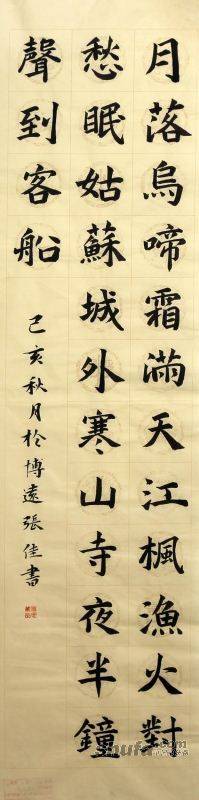 月落烏啼霜滿天江楓漁火對
愁眠姑蘇城外寒山寺夜半鐘
聲到客船
己亥秋月於博遠張佳書